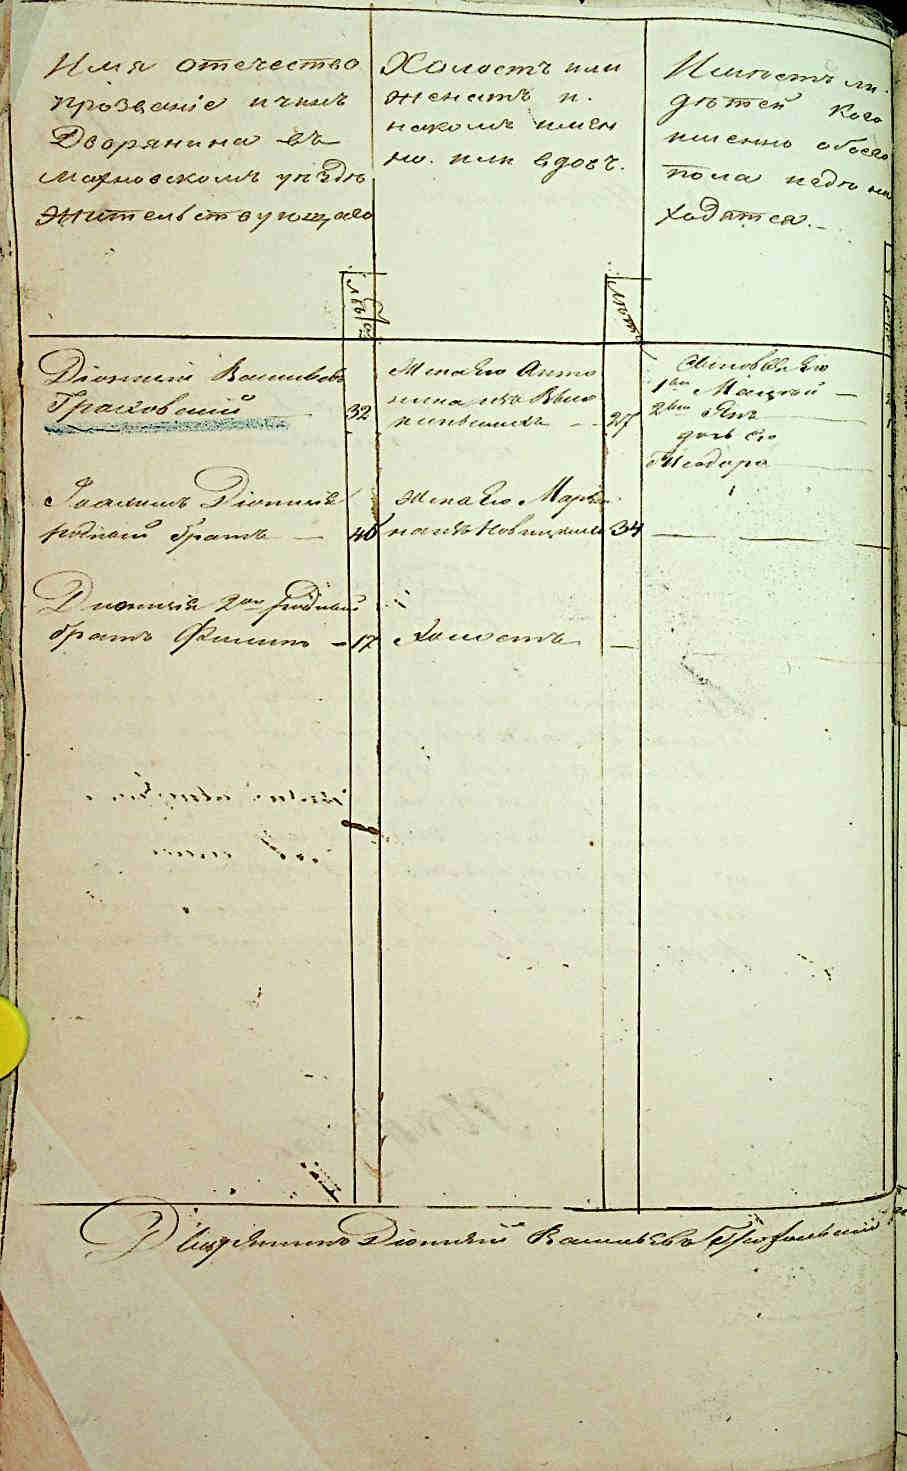 Имя отечество
прозваніе и чинъ
Дворянина въ
Махновскомъ уѣздѣ
жительствующаго
Холостъ или
женатъ и.
накомъ имен
но. или вдовъ.
Имѣетъ ли
дѣтей кого
именно обоего
пола и гдѣ на
ходятся.
лѣта
лѣта
Діонисій Васильевъ
Граховскій
32
Жена Его Анто
нина изъ
27
Сыновья Его
1ый Мацѣй
2ый Янъ
дочь Его
Теодора
Іоакимъ Діонисія
родный братъ
46
жена Его Марья
на изъ Новицкихъ
34
Діонисія 2ой родный
братъ Филипъ
17
Холостъ
Дворянинъ Діонисій Васильевъ Граховскій